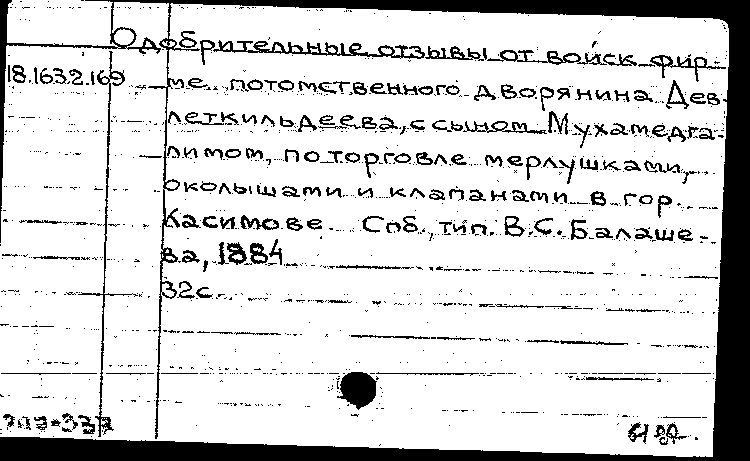 Одобрительные отзывы от войск фир-
18.163.2.169 ме потомственного дворянина Дев
леткильдеева, с сыном Мухамедга-
лимом, по торговле мерлушками,
околышами и клапанами в гор.
Касимове. Спб., тип. В.С. Балаше-
ва, 1884
32с.